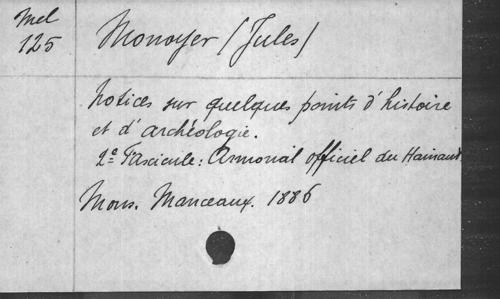 Mel
125
Monoyer (Jules)
Notices sur quelques points d'histoire
et d'archéologie.
2e Fascicule: Armorial officiel du Hainaut
Mons. Manceaux. 1886